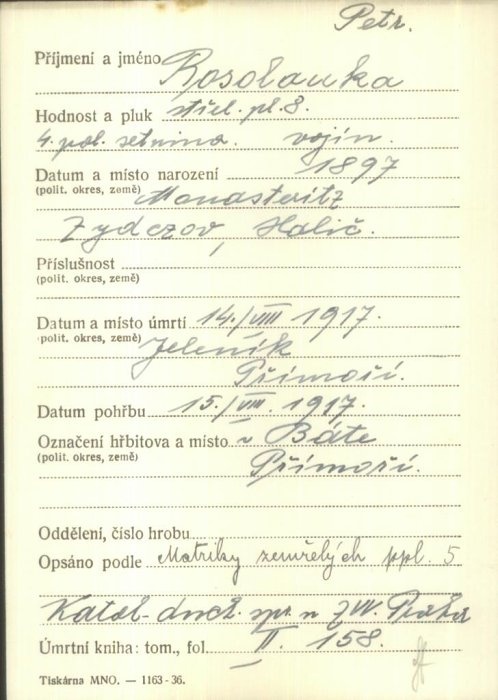 Petr.
Příjmení a jméno Rosolauka
Hodnost a pluk střel. pl. 8.
4. pol. setnina. vojín.
Datum a místo narození 1897
(polit. okres, země) Monasteritz
Zydczov, Halič.
Příslušnost
(polit. okres, země)
Datum a místo úmrtí 14./VIII 1917.
(polit. okres, země) Jeleník
Přímoří.
Datum pohřbu 15./VIII. 1917.
Označení hřbitova a místo v Báte
(polit. okres, země) Přímoří.
Oddělení, číslo hrobu
Opsáno podle Matriky zemřelých ppl. 5
Katol. duch. spr. n ZVV. Praha
Úmrtní kniha: tom., fol. II. 158.
Tiskárna MNO. — 1163-36.